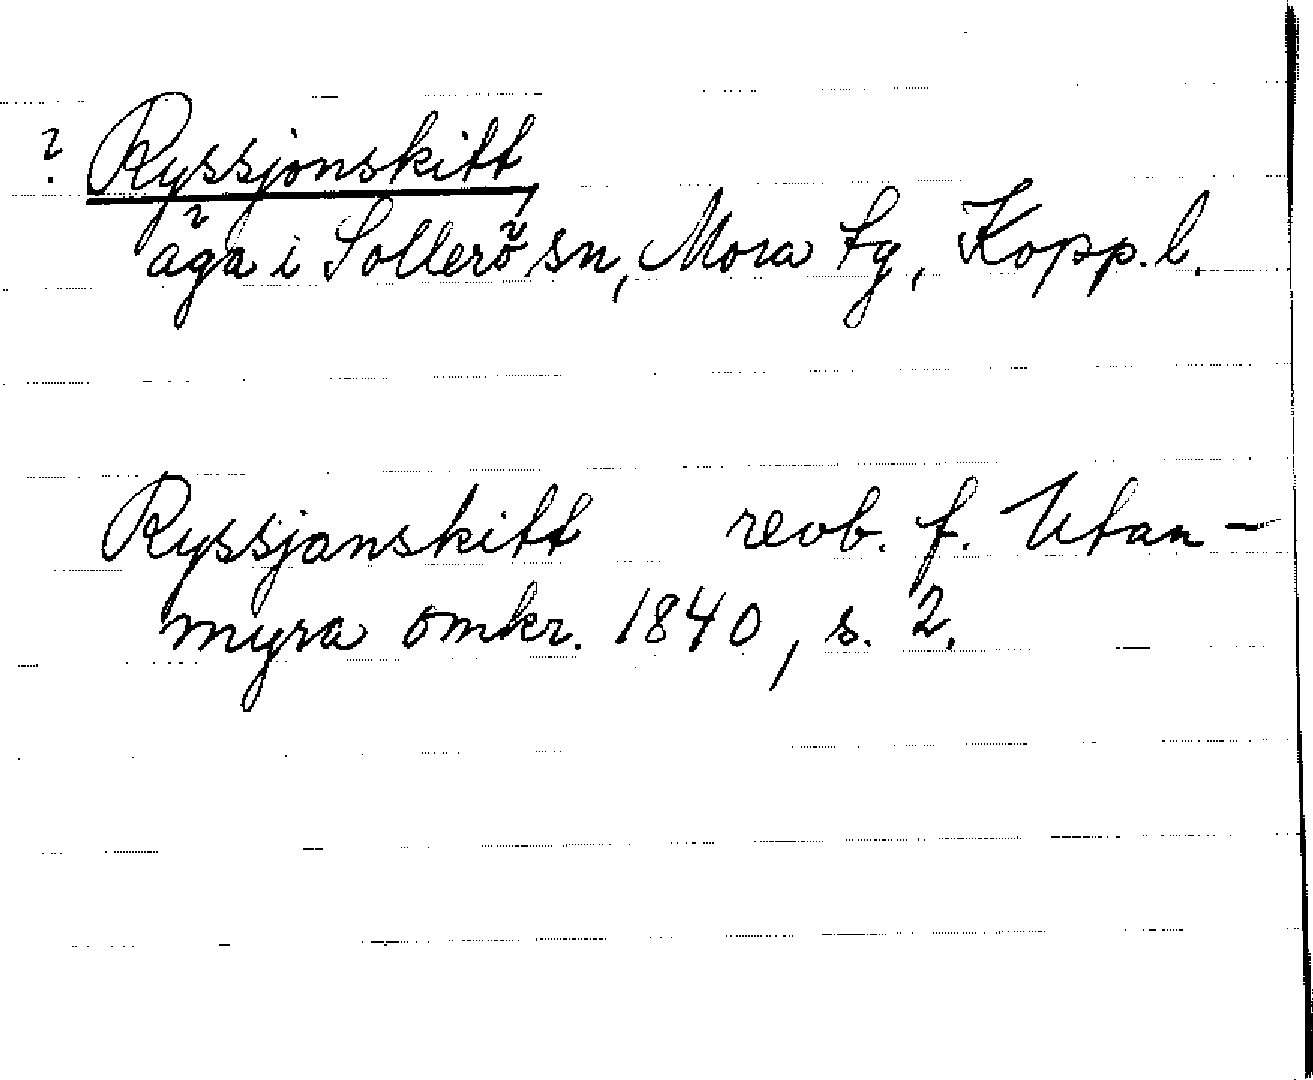 ? Ryssjonskitt,
äga i Sollerö sn, Mora tg, Kopp. l.
Ryssjanskitt reob. f. Utan-
myra omkr. 1840, s. 2.